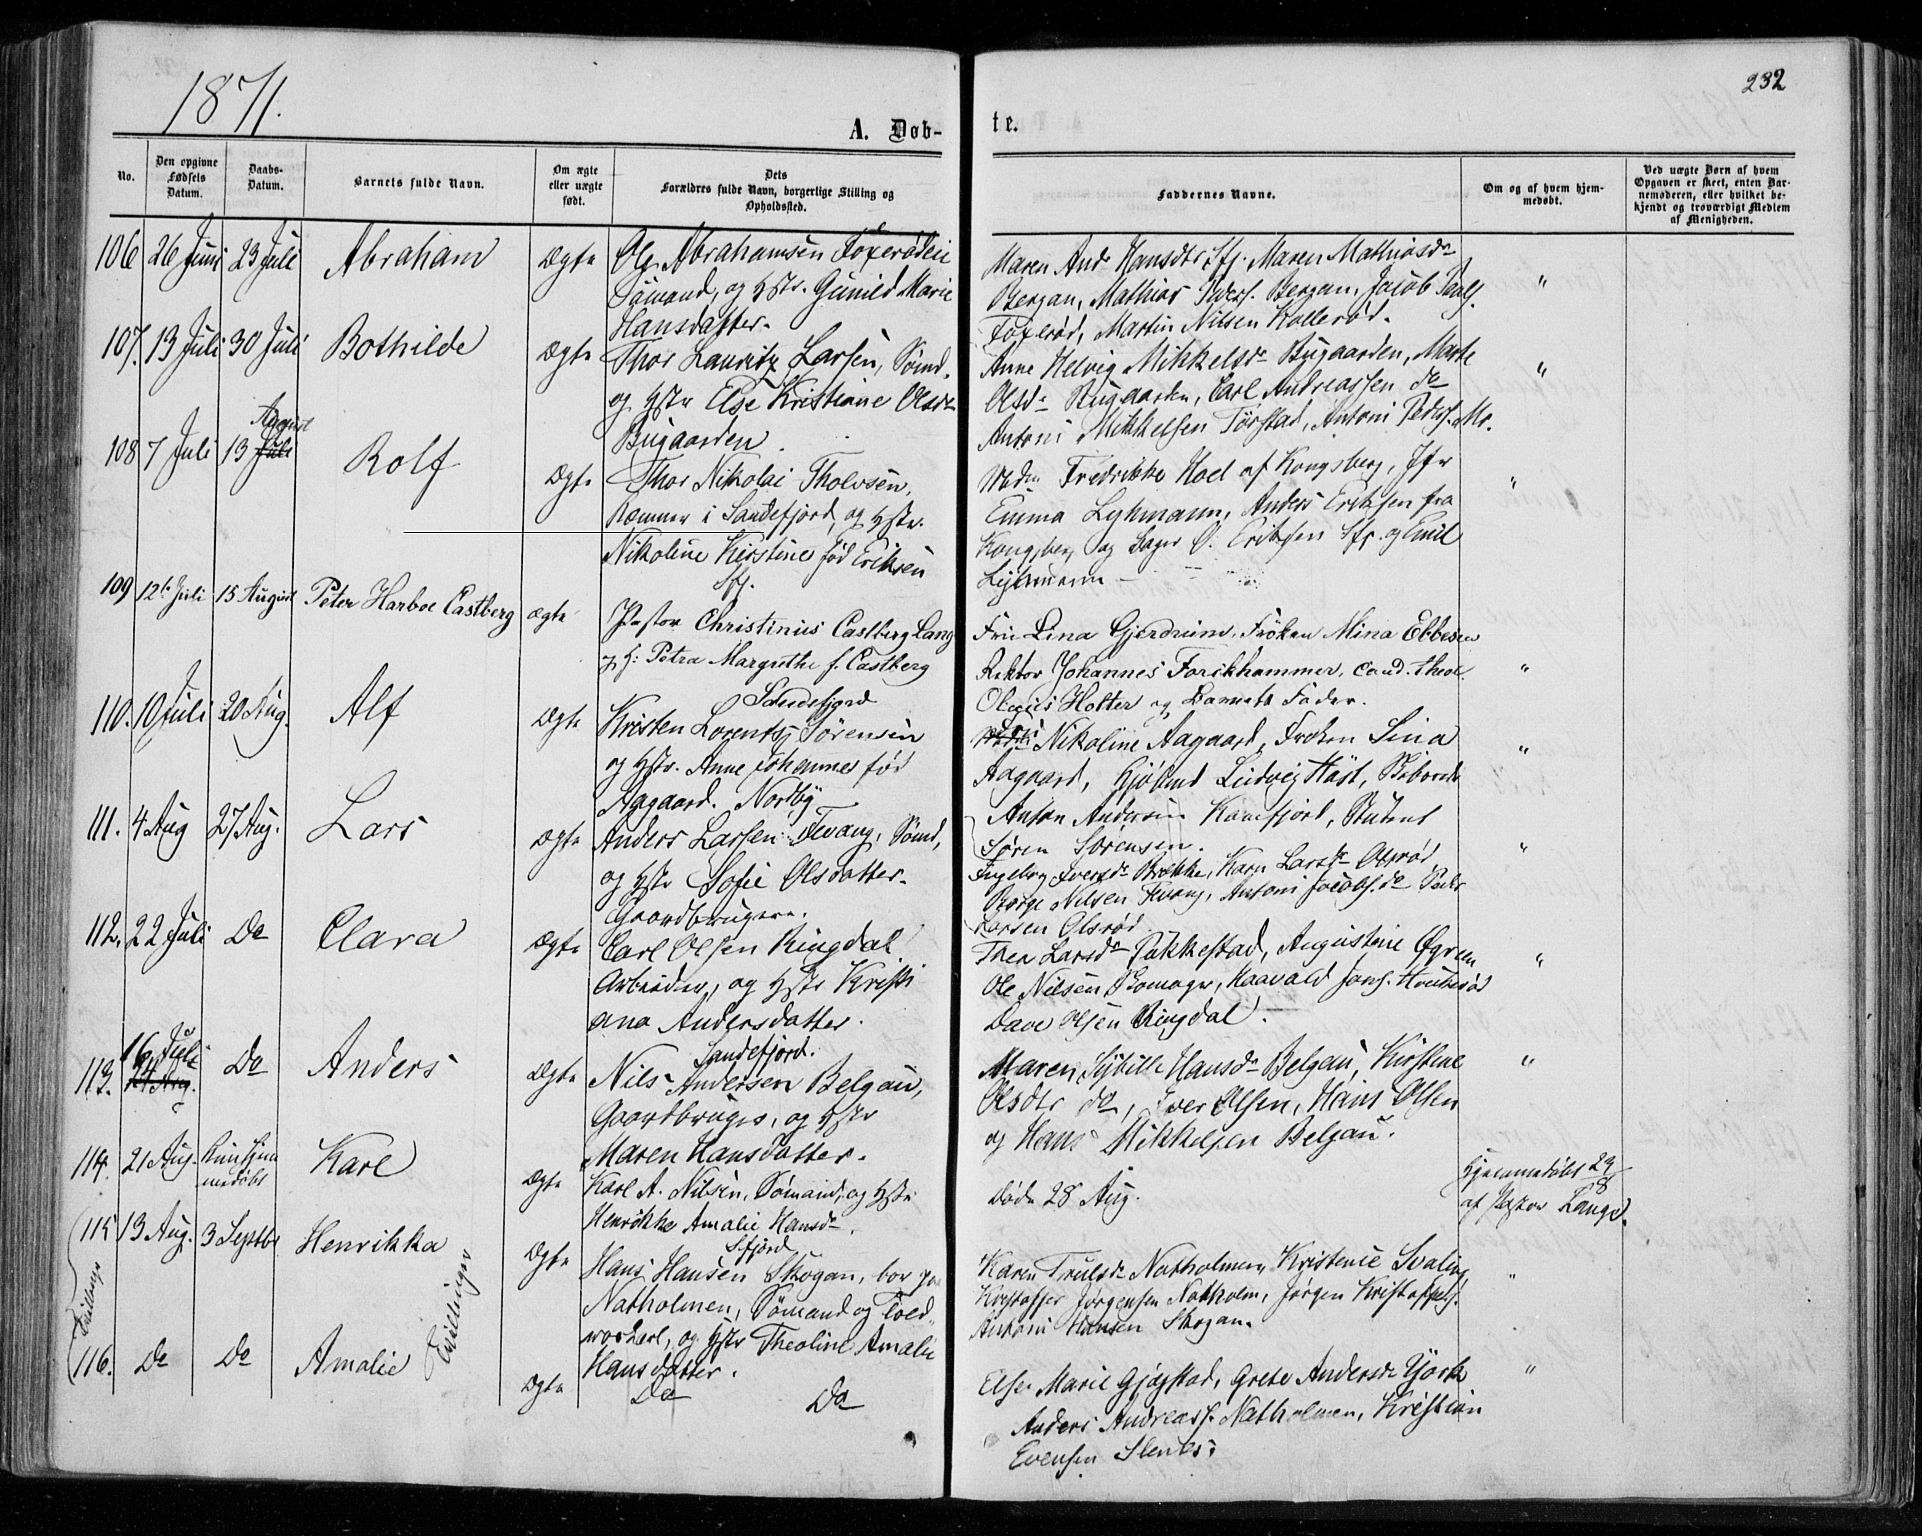 1871.
232
A. Døb-
te.
No.
Den opgivne Fødsels Datum.
Daabs-Datum.
Barnets fulde Navn.
Om ægte eller uægte født.
Dets Forældres fulde Navn, borgerlige Stilling og Opholdssted.
Faddernes Navne.
Om og af hvem hjem-medøbt.
Ved uægte Børn af hvem Opgaven er skeet, enten Bar-nemoderen, eller hvilket be-kjendt og troværdigt Medlem af Menigheden.
106 26 Juni 23 Juli Abraham Ægte
Ole Abrahamsen Foxerødeie
Sømand, og Hstr. Gunild Marie
Hansdatter.
Maren And. Hansdtr Sfj. Maren Mathiasdr
Bergan, Mathias Peders. Bergan, Jacob Pauls.
Foxerød, Martin Nilsen Kollerød.
"
107. 13 Juli 30 Juli Bothilde Ægte
Thor Lauritz Larsen, Sømd.
og Hstr Else Kristiane Olsdr
Bugaarden.
Anne Helvig Mikkelsdr Bugaarden, Marte
Olsdr Bugaarden, Carl Andreassen do
Antoni Mikkelsen Tørstad, Antoni Peders. Mo.
"
August
108 7 Juli 13 Juli Rolf Ægte
Thor Nikolai Tholvsen,
Kæmner i Sandefjord, og Hstr.
Nikoline Kirstine fød Eriksen
Sfj.
Madm Fredrikke Hoel af Kongsberg, Jfr
Emma Lykmann, Anders Eriksen fra
Kongsberg og Sager O. Eriksen Sfj. og Emil
Lykmann
"
109 12te Juli 15 August Peter Harboe Castberg ægte
Pastor Christinus Castberg Lange
og H: Petra Margrethe f. Castberg
Sandefjord
Fru Lina Gjerdrum, Frøken Mina Ebbesen
Rektor Johannes Forchhammer, cand. theol
Olaus Holter og Barnets Fader.
"
110. 10 Juli 20 Aug. Alf Ægte
Kristen Lorents Sørensen
og Hstr. Anne Johanne fød
Aagaard. Nordby
Nikoline Aagaard, Frøken Sina
Aagaard, Ludvig Høst,
Anton Andersen Kamfjord, Student
Søren Sørensen.
"
111. 4 Aug 27 Aug. Lars Ægte
Anders Larsen Fevang, Sømd,
og Hstr Sofie Olsdatter.
Gaardbrugere.
Ingeborg Iversdr Brekke, Karen Larsdr Olsrød
Børge Nilsen Fevang, Antoni Jacobs. do Peder
Larsen Olsrød
"
112. 22 Juli Do Clara Ægte
Carl Olsen Ringdal
Arbeider, og Hstr Kristi
ana Andersdatter.
Sandefjord.
Thea Larsdr Pukkestad, Augustine Øgren
Ole Nilsen Bomager, Haavald Jons. Hvitterød
Dave Olsen Ringdal.
"
16 Juli
113. 24 Aug. Do Anders Ægte
Nils Andersen Belgau,
Gaardbruger, og Hstr
Maren Hansdatter.
Maren Sybille Hansdr Belgau, Kirstine
Olsdtr do, Iver Olsen, Hans Olsen
og Hans Mikkelsen Belgau.
"
114. 21 Aug. Kun hjem
medøbt Karl Ægte
Karl A. Nilsen, Sømand, og Hstr
Henrikke Amalie Hansdr.
Sfjord
Døde 28 Aug.
Hjemmedøbt 23/8
af Pastor Lange.
115 13 Aug. 3 Septbr Henrikka Ægte
Hans Hansen Skogan, bor paa
Natholmen, Sømand og Told
roerkarl, og Hstr Theoline Amalie
Hansdatter.
Karen Trulsdr Natholmen, Kristence Svaling
Kristoffer Jørgensen Natholm, Jørgen Kristoffers.
Antoni Hansen Skogan.
"
Tvillinger
Tvillinger
116. Do Do Amalie Ægte
Do Do
Else Marie Gjøgstad, Grete Andersdr Yjork
Anders Andreass. Natholmen, Kristian
Evensen
"